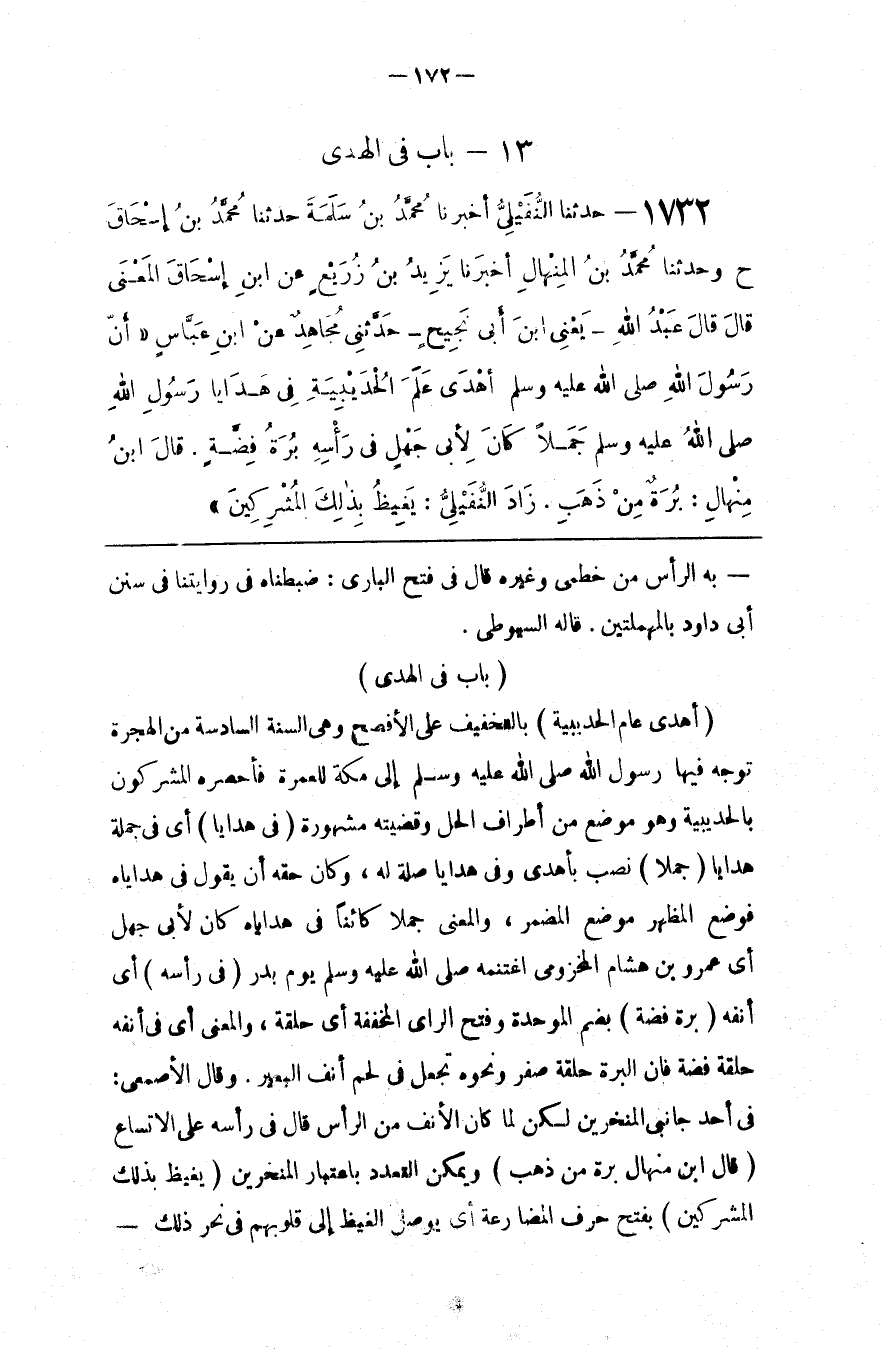 — ١٧٢ —
١٣ — باب فى الهدى
١٧٣٢ — حدثنا النُّفَيْلِىُّ أخبرنا مُحمَّدُ بنُ سَلَمَةَ حدثنا مُحمَّدُ بنُ إسْحَاقَ
ح وحدثنا مُحمَّدُ بنُ المِنْهالِ أخبرَنا يَزِيدُ بنُ زُرَيْعٍ عن ابنِ إسْحَاقَ المَعْنَى
قالَ قالَ عَبْدُ اللهِ ـ يَعْنِى ابنَ أَبى نَجِيحٍ ـ حَدَّثنِى مُجَاهِدٌ عنْ ابنِ عَبَّاسٍ « أَنّ
رَسُولَ اللهِ صلى الله عليه وسلم أهْدَى عَلَمَ الْحُدَيْبِيَةِ فِى هَدَايا رَسُولِ اللهِ
صلى اللهُ عليه وسلم جَمَلاً كانَ لِأبى جَهْلٍ فى رَأْسِهِ بُرَةُ فِضَّةٍ . قالَ ابنُ
مِنْهالِ : بُرَةٌ مِنْ ذَهَبٍ . زَادَ النُّفَيْلِىُّ : يَغِيظُ بِذٰلِكَ المُشْرِكِينَ »
— به الرأس من خطمى وغيره قال فى فتح البارى : ضبطناه فى روايتنا فى سنن
أبى داود بالمهملتين . قاله السيوطى .
( باب فى الهدى )
( أهدى عام الحديبية ) بالتخفيف على الأفصح وهى السنة السادسة من الهجرة
توجه فيها رسول الله صلى الله عليه وسلم إلى مكة للعمرة فأحصره المشركون
بالحديبية وهو موضع من أطراف الحل وقضيته مشهورة ( فى هدايا ) أى فى جملة
هدايا ( جملا ) نصب بأهدى وفى هدايا صلة له ، وكان حقه أن يقول فى هداياه
فوضع المظهر موضع المضمر ، والمعنى جملا كائناً فى هداياه كان لأبى جهل
أى عمرو بن هشام المخزومى اغتنمه صلى الله عليه وسلم يوم بدر ( فى رأسه ) أى
أنفه ( برة فضة ) بضم الموحدة وفتح الراى المخففة أى حلقة ، والمعنى أى فى أنفه
حلقة فضة فان البرة حلقة صفر ونحوه تجعل فى لحم أنف البعير . وقال الأصمعى :
فى أحد جانبى المنخرين لكن لما كان الأنف من الرأس قال فى رأسه على الاتساع
( قال ابن منهال برة من ذهب ) ويمكن التعدد باعتبار المنخرين ( يغيظ بذلك
المشركين ) بفتح حرف المضارعة أى يوصل الغيظ إلى قلوبهم فى نحر ذلك —